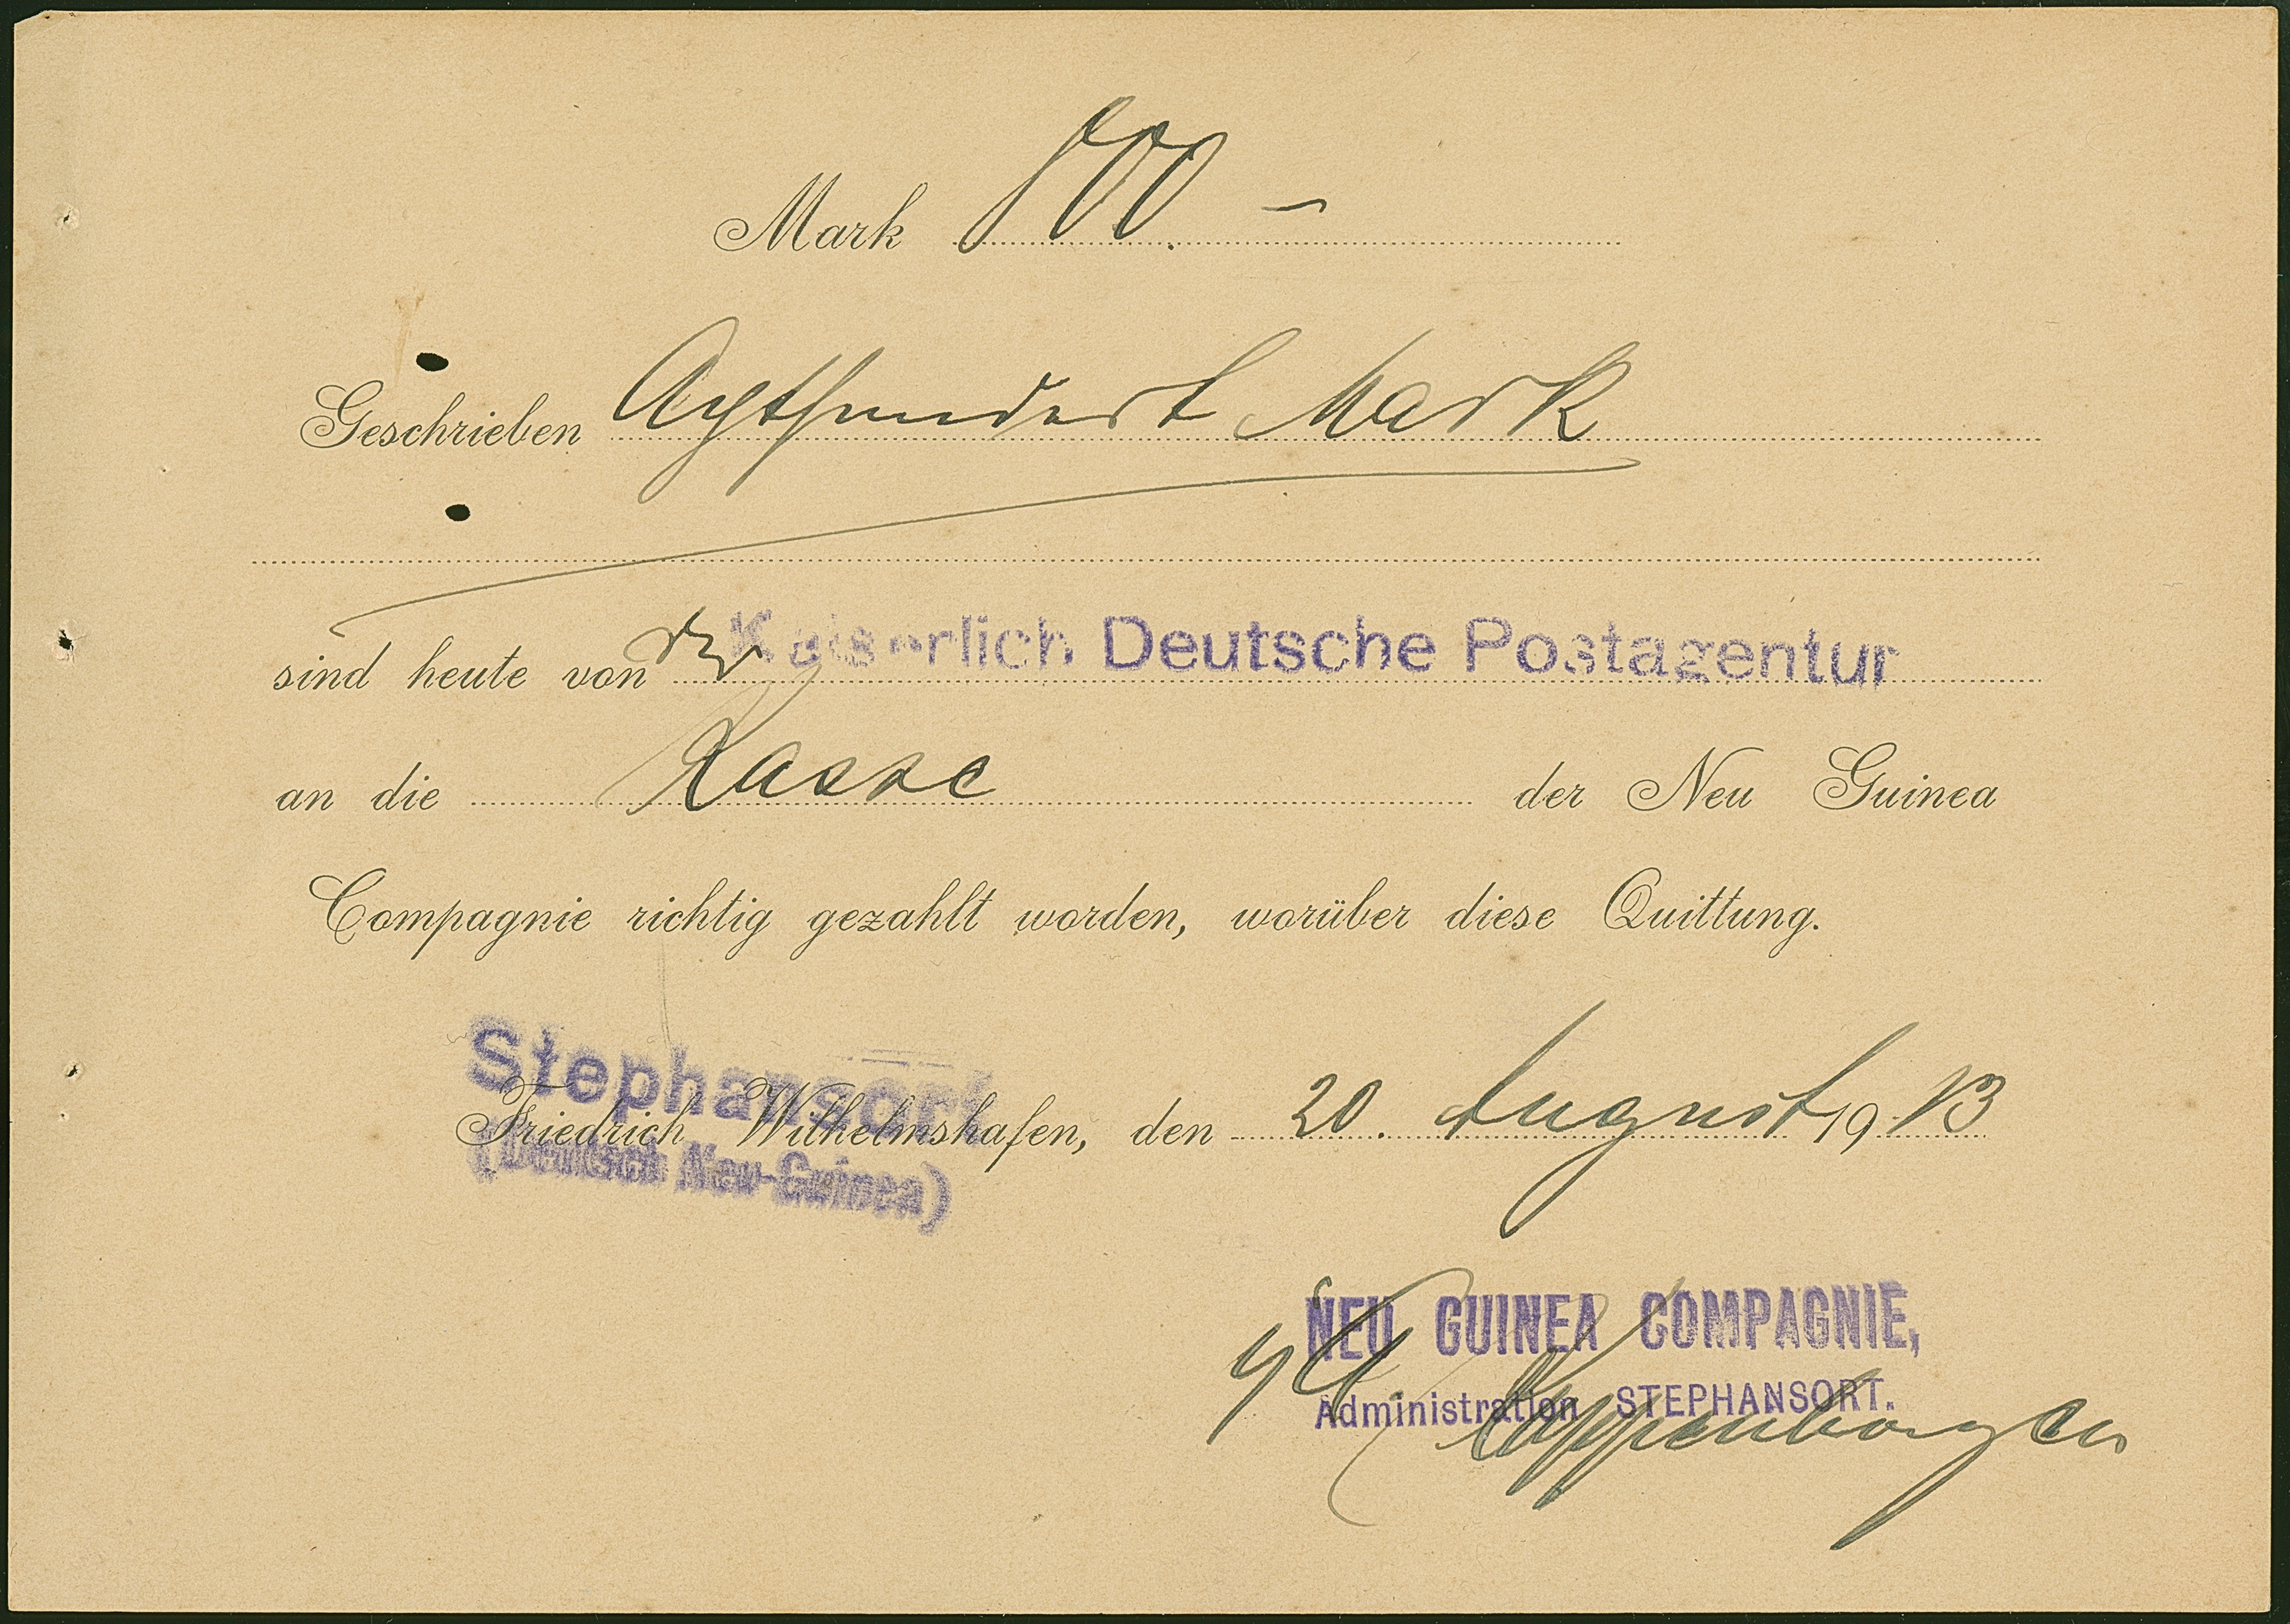 Mark 800. –
Geschrieben Achthundert Mark
sind heute von der Kaiserlich Deutsche Postagentur
an die Kasse der Neu Guinea
Compagnie richtig gezahlt worden, worüber diese Quittung.
Stephansort
Friedrich Wilhelmshafen, den 20. August 1913
(Deutsch Neu-Guinea)
NEU GUINEA COMPAGNIE,
Administration STEPHANSORT.